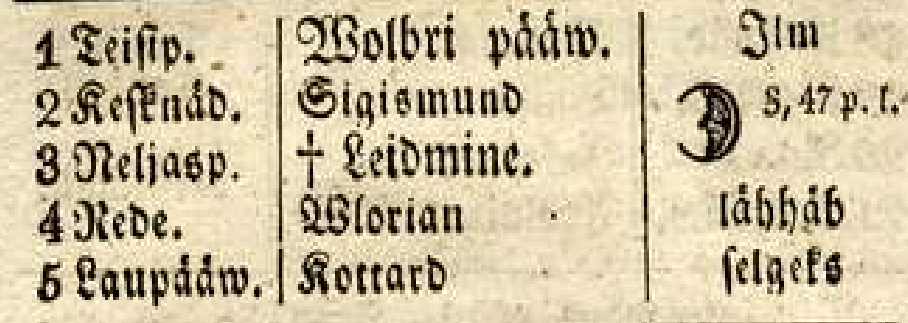 1 Teisip. Wolbri pääw. Ilm
2 Kesknäd. Sigismund 8, 47 p. l.
3 Neljasp. † Leidmine.
4 Rede. Wlorian lähhäb
5 Laupääw. Kottard selgeks